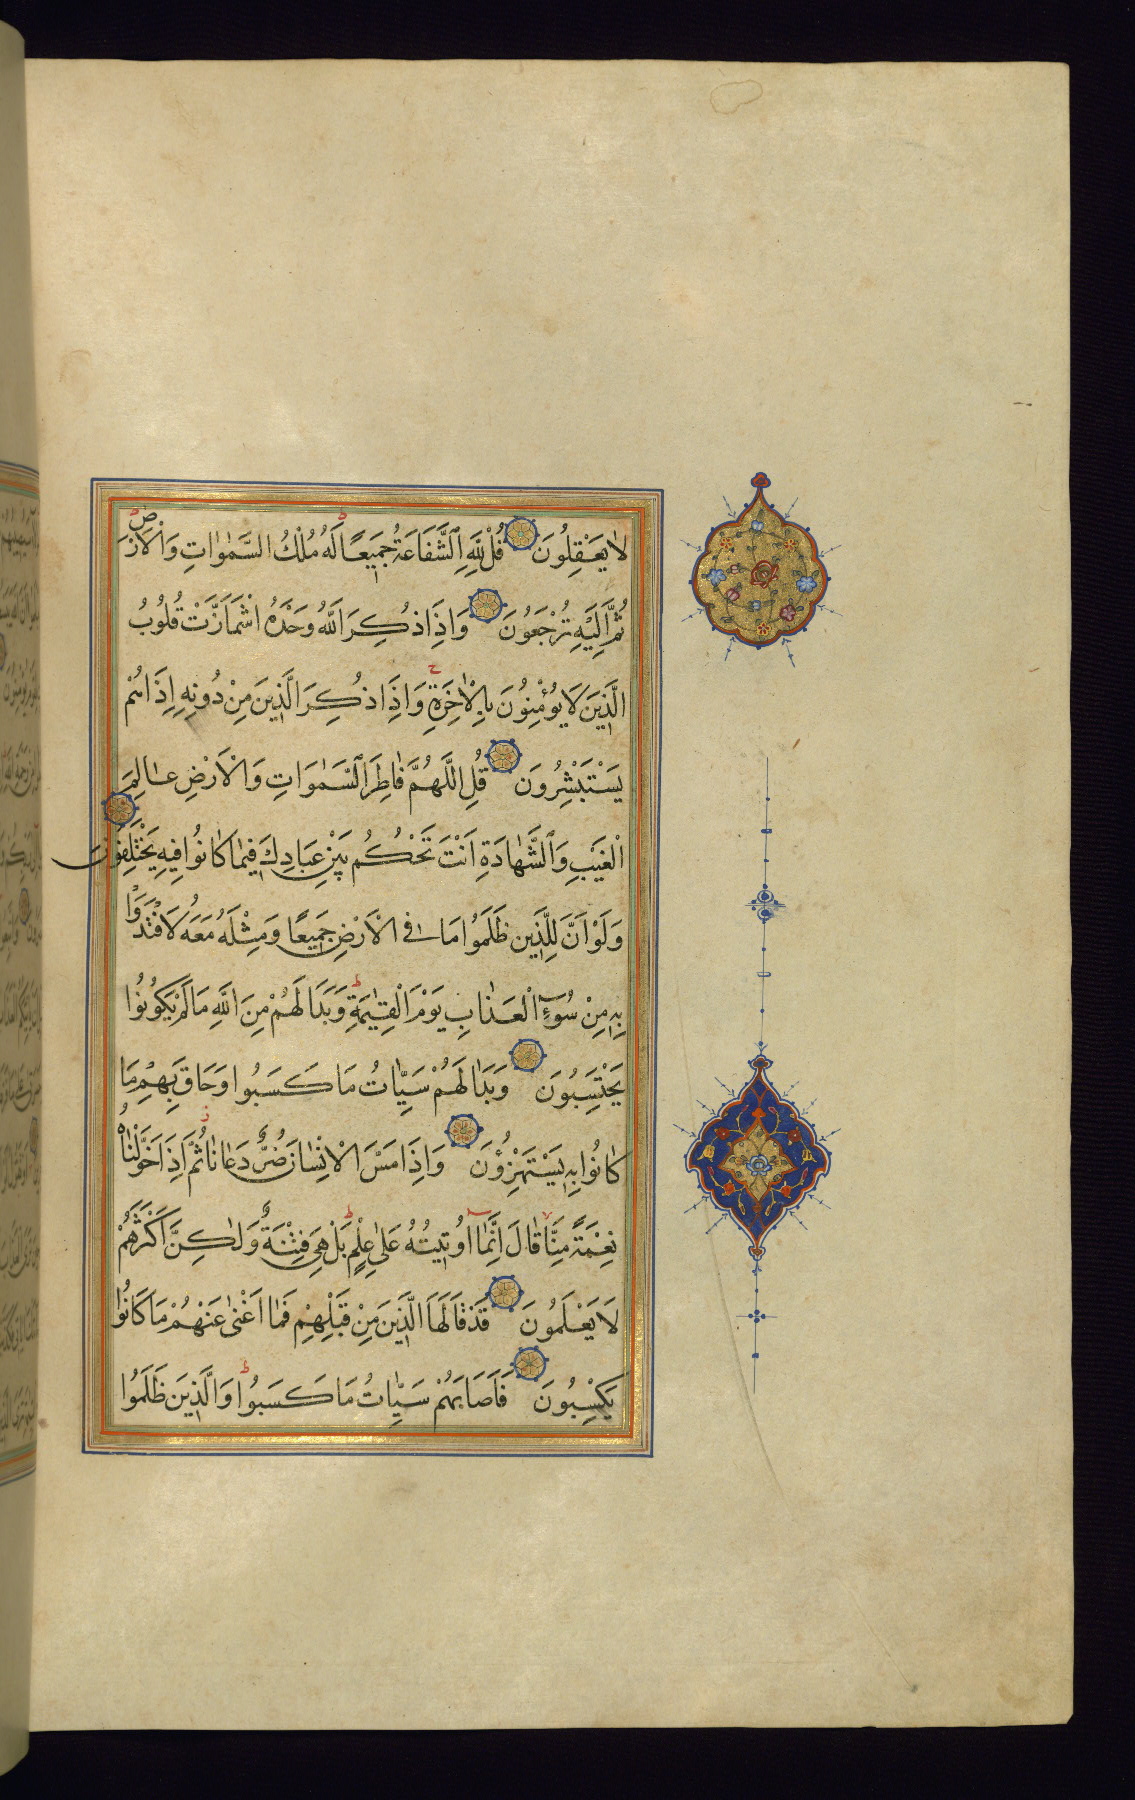 لَا يَعْقِلُونَ قُلْ لِلّٰهِ الشَّفَاعَةُ جَمِيعًا لَهُ مُلْكُ السَّمٰوَاتِ وَالْاَرْضِ
ثُمَّ اِلَيْهِ تُرْجَعُونَ وَاِذَا ذُكِرَ اللّٰهُ وَحْدَهُ اشْمَاَزَّتْ قُلُوبُ
الَّذِينَ لَا يُؤْمِنُونَ بِالْاٰخِرَةِ وَاِذَا ذُكِرَ الَّذِينَ مِنْ دُونِهِ اِذَا هُمْ
يَسْتَبْشِرُونَ قُلِ اللّٰهُمَّ فَاطِرَ السَّمٰوَاتِ وَالْاَرْضِ عَالِمَ
الْغَيْبِ وَالشَّهَادَةِ اَنْتَ تَحْكُمُ بَيْنَ عِبَادِكَ فِيمَا كَانُوا فِيهِ يَخْتَلِفُونَ
وَلَوْ اَنَّ لِلَّذِينَ ظَلَمُوا مَا فِي الْاَرْضِ جَمِيعًا وَمِثْلَهُ مَعَهُ لَافْتَدَوْا
بِهِ مِنْ سُوءِ الْعَذَابِ يَوْمَ الْقِيٰمَةِ وَبَدَا لَهُمْ مِنَ اللّٰهِ مَا لَمْ يَكُونُوا
يَحْتَسِبُونَ وَبَدَا لَهُمْ سَيِّاٰتُ مَا كَسَبُوا وَحَاقَ بِهِمْ مَا
كَانُوا بِهِ يَسْتَهْزِؤُنَ وَاِذَا مَسَّ الْاِنْسَانَ ضُرٌّ دَعَانَا ثُمَّ اِذَا خَوَّلْنَاهُ
نِعْمَةً مِنَّا قَالَ اِنَّمَا اُوتِيتُهُ عَلٰى عِلْمٍ بَلْ هِيَ فِتْنَةٌ وَلٰكِنَّ اَكْثَرَهُمْ
لَا يَعْلَمُونَ قَدْ قَالَهَا الَّذِينَ مِنْ قَبْلِهِمْ فَمَا اَغْنٰى عَنْهُمْ مَا كَانُوا
يَكْسِبُونَ فَاَصَابَهُمْ سَيِّاٰتُ مَا كَسَبُوا وَالَّذِينَ ظَلَمُوا